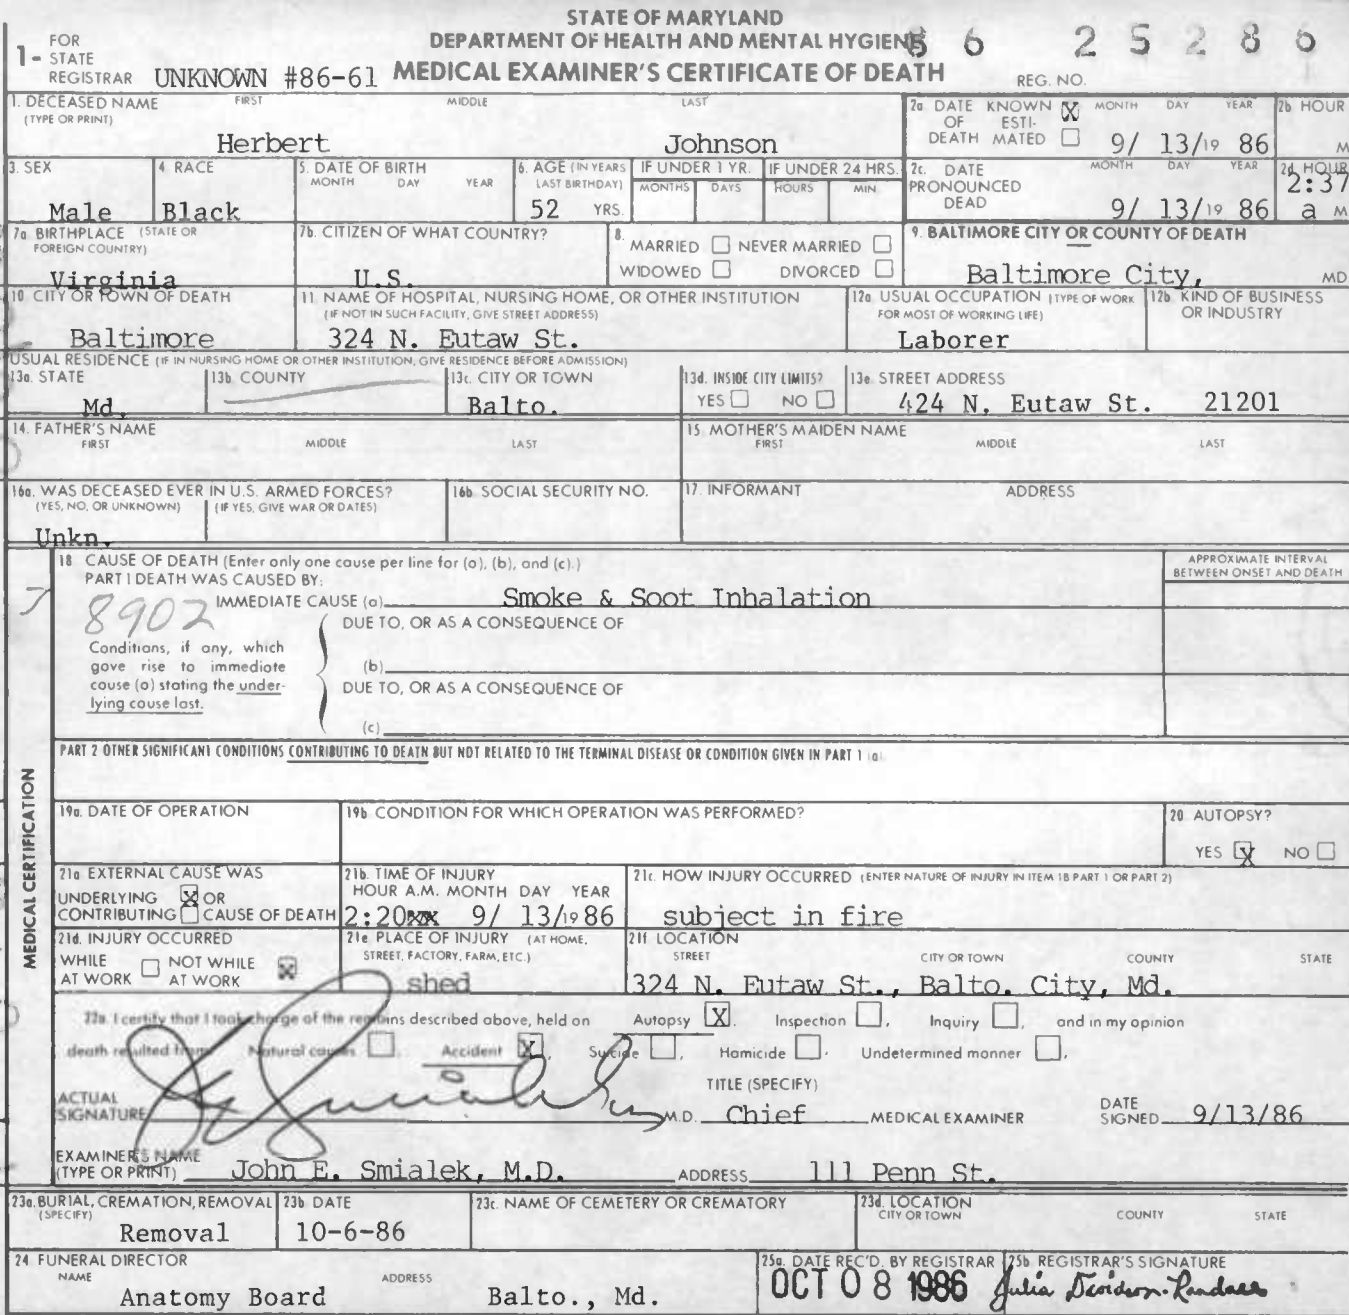 STATE OF MARYLAND
DEPARTMENT OF HEALTH AND MENTAL HYGIENE 86 25286
1- FOR STATE REGISTRAR UNKNOWN #86-61 MEDICAL EXAMINER'S CERTIFICATE OF DEATH REG. NO.
1. DECEASED NAME (TYPE OR PRINT) FIRST MIDDLE LAST
Herbert Johnson
2a. DATE OF DEATH KNOWN X ESTIMATED MONTH DAY YEAR 9/ 13/19 86
2b HOUR M
3. SEX Male
4 RACE Black
5. DATE OF BIRTH MONTH DAY YEAR
6. AGE (IN YEARS LAST BIRTHDAY) 52 YRS.
IF UNDER 1 YR. MONTHS DAYS
IF UNDER 24 HRS. HOURS MIN.
2c. DATE PRONOUNCED DEAD MONTH DAY YEAR 9/ 13/19 86
2d. HOUR 2:37 a M
7a. BIRTHPLACE (STATE OR FOREIGN COUNTRY) Virginia
7b. CITIZEN OF WHAT COUNTRY? U.S.
8. MARRIED NEVER MARRIED
WIDOWED DIVORCED
9. BALTIMORE CITY OR COUNTY OF DEATH
Baltimore City, MD
10 CITY OR TOWN OF DEATH Baltimore
11. NAME OF HOSPITAL, NURSING HOME, OR OTHER INSTITUTION
(IF NOT IN SUCH FACILITY, GIVE STREET ADDRESS)
324 N. Eutaw St.
12a. USUAL OCCUPATION (TYPE OF WORK FOR MOST OF WORKING LIFE)
Laborer
12b. KIND OF BUSINESS OR INDUSTRY
USUAL RESIDENCE (IF IN NURSING HOME OR OTHER INSTITUTION, GIVE RESIDENCE BEFORE ADMISSION)
13a. STATE Md.
13b. COUNTY
13c. CITY OR TOWN Balto.
13d. INSIDE CITY LIMITS? YES NO
13e. STREET ADDRESS 424 N. Eutaw St. 21201
14. FATHER'S NAME FIRST MIDDLE LAST
15. MOTHER'S MAIDEN NAME FIRST MIDDLE LAST
16a. WAS DECEASED EVER IN U.S. ARMED FORCES?
(YES, NO, OR UNKNOWN) (IF YES, GIVE WAR OR DATES)
Unkn.
16b. SOCIAL SECURITY NO.
17. INFORMANT ADDRESS
MEDICAL CERTIFICATION
18 CAUSE OF DEATH (Enter only one cause per line for (a), (b), and (c).)
PART I DEATH WAS CAUSED BY:
APPROXIMATE INTERVAL BETWEEN ONSET AND DEATH
7
8902
IMMEDIATE CAUSE (a) Smoke & Soot Inhalation
DUE TO, OR AS A CONSEQUENCE OF
Conditions, if any, which gave rise to immediate cause (a) stating the underlying cause last.
(b)
DUE TO, OR AS A CONSEQUENCE OF
(c)
PART 2 OTHER SIGNIFICANT CONDITIONS CONTRIBUTING TO DEATH BUT NOT RELATED TO THE TERMINAL DISEASE OR CONDITION GIVEN IN PART 1 (a)
19a. DATE OF OPERATION
19b. CONDITION FOR WHICH OPERATION WAS PERFORMED?
20. AUTOPSY?
YES X NO
21a. EXTERNAL CAUSE WAS
UNDERLYING X OR
CONTRIBUTING CAUSE OF DEATH
21b. TIME OF INJURY
HOUR A.M. MONTH DAY YEAR
2:20 9/ 13/19 86
21c. HOW INJURY OCCURRED (ENTER NATURE OF INJURY IN ITEM 18 PART 1 OR PART 2)
subject in fire
21d. INJURY OCCURRED
WHILE AT WORK NOT WHILE AT WORK X
21e. PLACE OF INJURY (AT HOME, STREET, FACTORY, FARM, ETC.)
shed
21f. LOCATION STREET CITY OR TOWN COUNTY STATE
324 N. Eutaw St., Balto. City, Md.
22a. I certify that I took charge of the remains described above, held on Autopsy X. Inspection , Inquiry , and in my opinion
death resulted from: Natural causes , Accident X, Suicide , Homicide . Undetermined manner .
ACTUAL SIGNATURE M.D. TITLE (SPECIFY) Chief MEDICAL EXAMINER DATE SIGNED 9/13/86
EXAMINER'S NAME (TYPE OR PRINT) John E. Smialek, M.D. ADDRESS 111 Penn St.
23a. BURIAL, CREMATION, REMOVAL (SPECIFY) Removal
23b. DATE 10-6-86
23c. NAME OF CEMETERY OR CREMATORY
23d. LOCATION CITY OR TOWN COUNTY STATE
24 FUNERAL DIRECTOR NAME ADDRESS
Anatomy Board Balto., Md.
25a. DATE REC'D. BY REGISTRAR OCT 08 1986
25b. REGISTRAR'S SIGNATURE Julia Davidson-Randall